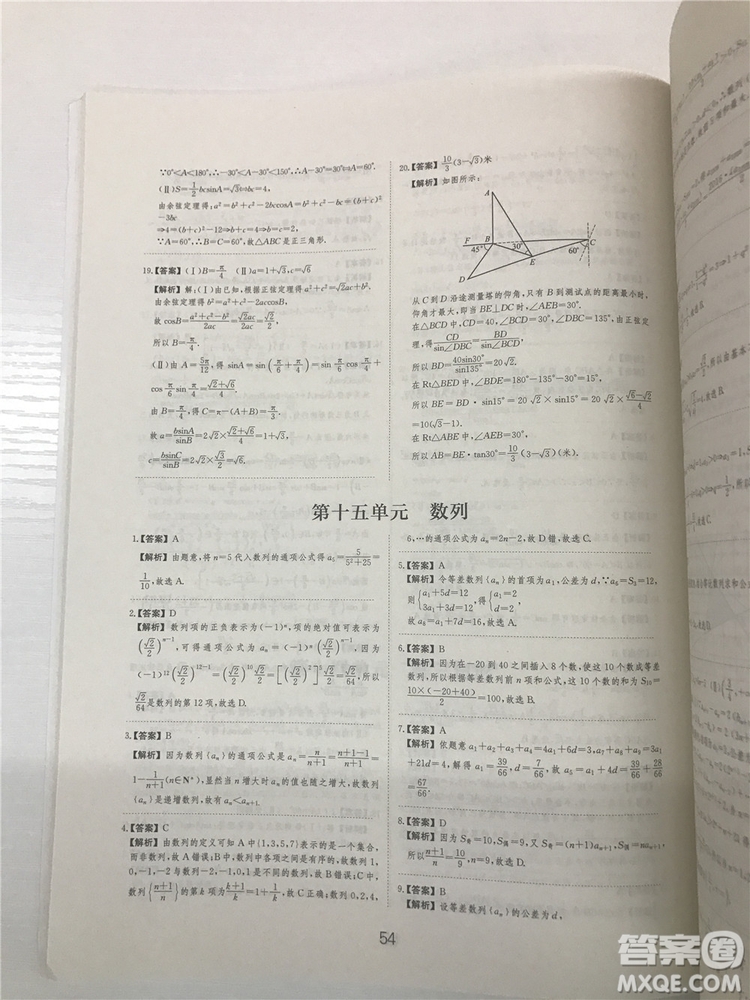 ∵0°<A<180°,∴-30°<A-30°<150°,∴A-30°=30°⇒A=60°.
(Ⅱ)S=1/2 bcsinA=√3⇔bc=4,
由余弦定理得:a²=b²+c²-2bccosA=b²+c²-bc⇔(b+c)²
-3bc
⇒4=(b+c)²-12⇒b+c=4⇒b=c=2.
∵A=60°,∴B=C=60°,故△ABC是正三角形.
19.【答案】(Ⅰ)B=π/4 (Ⅱ)a=1+√3,c=√6
【解析】解:(Ⅰ)由已知,根据正弦定理得a²+c²-√2ac=b².
由余弦定理得b²=a²+c²-2accosB.
故cosB=(a²+c²-b²)/2ac=√2ac/2ac=√2/2,
所以B=π/4.
(Ⅱ)由A=5π/12,得sinA=sin(π/6+π/4)=sinπ/6cosπ/4+cos
π/6sinπ/4=(√2+√6)/4.
由B=π/4,得C=π-(A+B)=π/3.
故a=bsinA/sinB=2√2×(√2+√6)/4=1+√3.
c=bsinC/sinB=2√2×√3/2=√6.
20.【答案】10/3(3-√3)米
【解析】如图所示:
A
F 45° B 30° 60° C
E
D
从C到D沿途测量塔的仰角,只有B到测试点的距离最小时,
仰角才最大,即当BE⊥DC时,∠AEB=30°.
在△BCD中,CD=40,∠BCD=30°,∠DBC=135°,由正弦定
理,得CD/sin∠DBC=BD/sin∠BCD,
所以BD=40sin30°/sin135°=20√2.
在Rt△BED中,∠BDE=180°-135°-30°=15°,
所以BE=BD·sin15°=20√2×sin15°=20√2×(√6-√2)/4
=10(√3-1).
在Rt△ABE中,∠AEB=30°,
所以AB=BE·tan30°=10/3(3-√3)(米).
第十五单元 数列
1.【答案】A
【解析】由题意,将n=5代入数列的通项公式得a₅=5/(5²+25)=
1/10,故选A.
2.【答案】D
【解析】数列项的正负表示为(-1)ⁿ,项的绝对值可表示为
(√2/2)ⁿ⁻¹,可得通项公式aₙ=(-1)ⁿ(√2/2)ⁿ⁻¹,因为
(-1)¹²(√2/2)¹²⁻¹=(√2/2)¹¹=[(√2/2)²]⁵√2/2=√2/64,所以
√2/64是数列的第12项,故选D.
3.【答案】B
【解析】因为数列{aₙ}的通项公式是aₙ=n/(n+1)=(n+1-1)/(n+1)=1
-1/(n+1)(n∈N*),显然当n增大时,aₙ的值也随之增大,故数列
{aₙ}是递增数列,故有aₙ<aₙ₊₁.
4.【答案】C
【解析】由数列的定义可知A中{1,3,5,7}表示的是一个集合,
而非数列,故A错误;B中,数列中各项之间是有序的,故数列1,
0,-1,-2与数列-2,-1,0,1是不同的数列,故B错误;C中,
数列{(n+1)/n}的第k项为(k+1)/k=1+1/k,故C正确;数列0,2,4,
6,…的通项公式为aₙ=2n-2,故D错,故选C.
5.【答案】A
【解析】令等差数列{aₙ}的首项为a₁,公差为d,∵a₆=S₃=12,
则{a₁+5d=12 3a₁+3d=12,得{a₁=2 d=2.
故a₈=a₁+7d=16,故选A.
6.【答案】B
【解析】因为在-20到40之间插入8个数,使这10个数成等差
数列,所以根据等差数列前n项和公式,这10个数的和为S₁₀=
10×(-20+40)/2=100,故选B.
7.【答案】A
【解析】依题意a₁+a₂+a₃+a₄=4a₁+6d=3,a₇+a₈+a₉=3a₁
+21d=4,解得a₁=39/66,d=7/66,故a₅=a₁+4d=39/66+28/66=
67/66.
8.【答案】D
【解析】因为S奇=10,S偶=9,又S奇=(n+1)aₙ₊₁,S偶=naₙ₊₁,
所以(n+1)/n=10/9,n=9,故选D.
9.【答案】B
【解析】设等差数列{aₙ}的公差为d,
54
答案圈
MXQE.COM